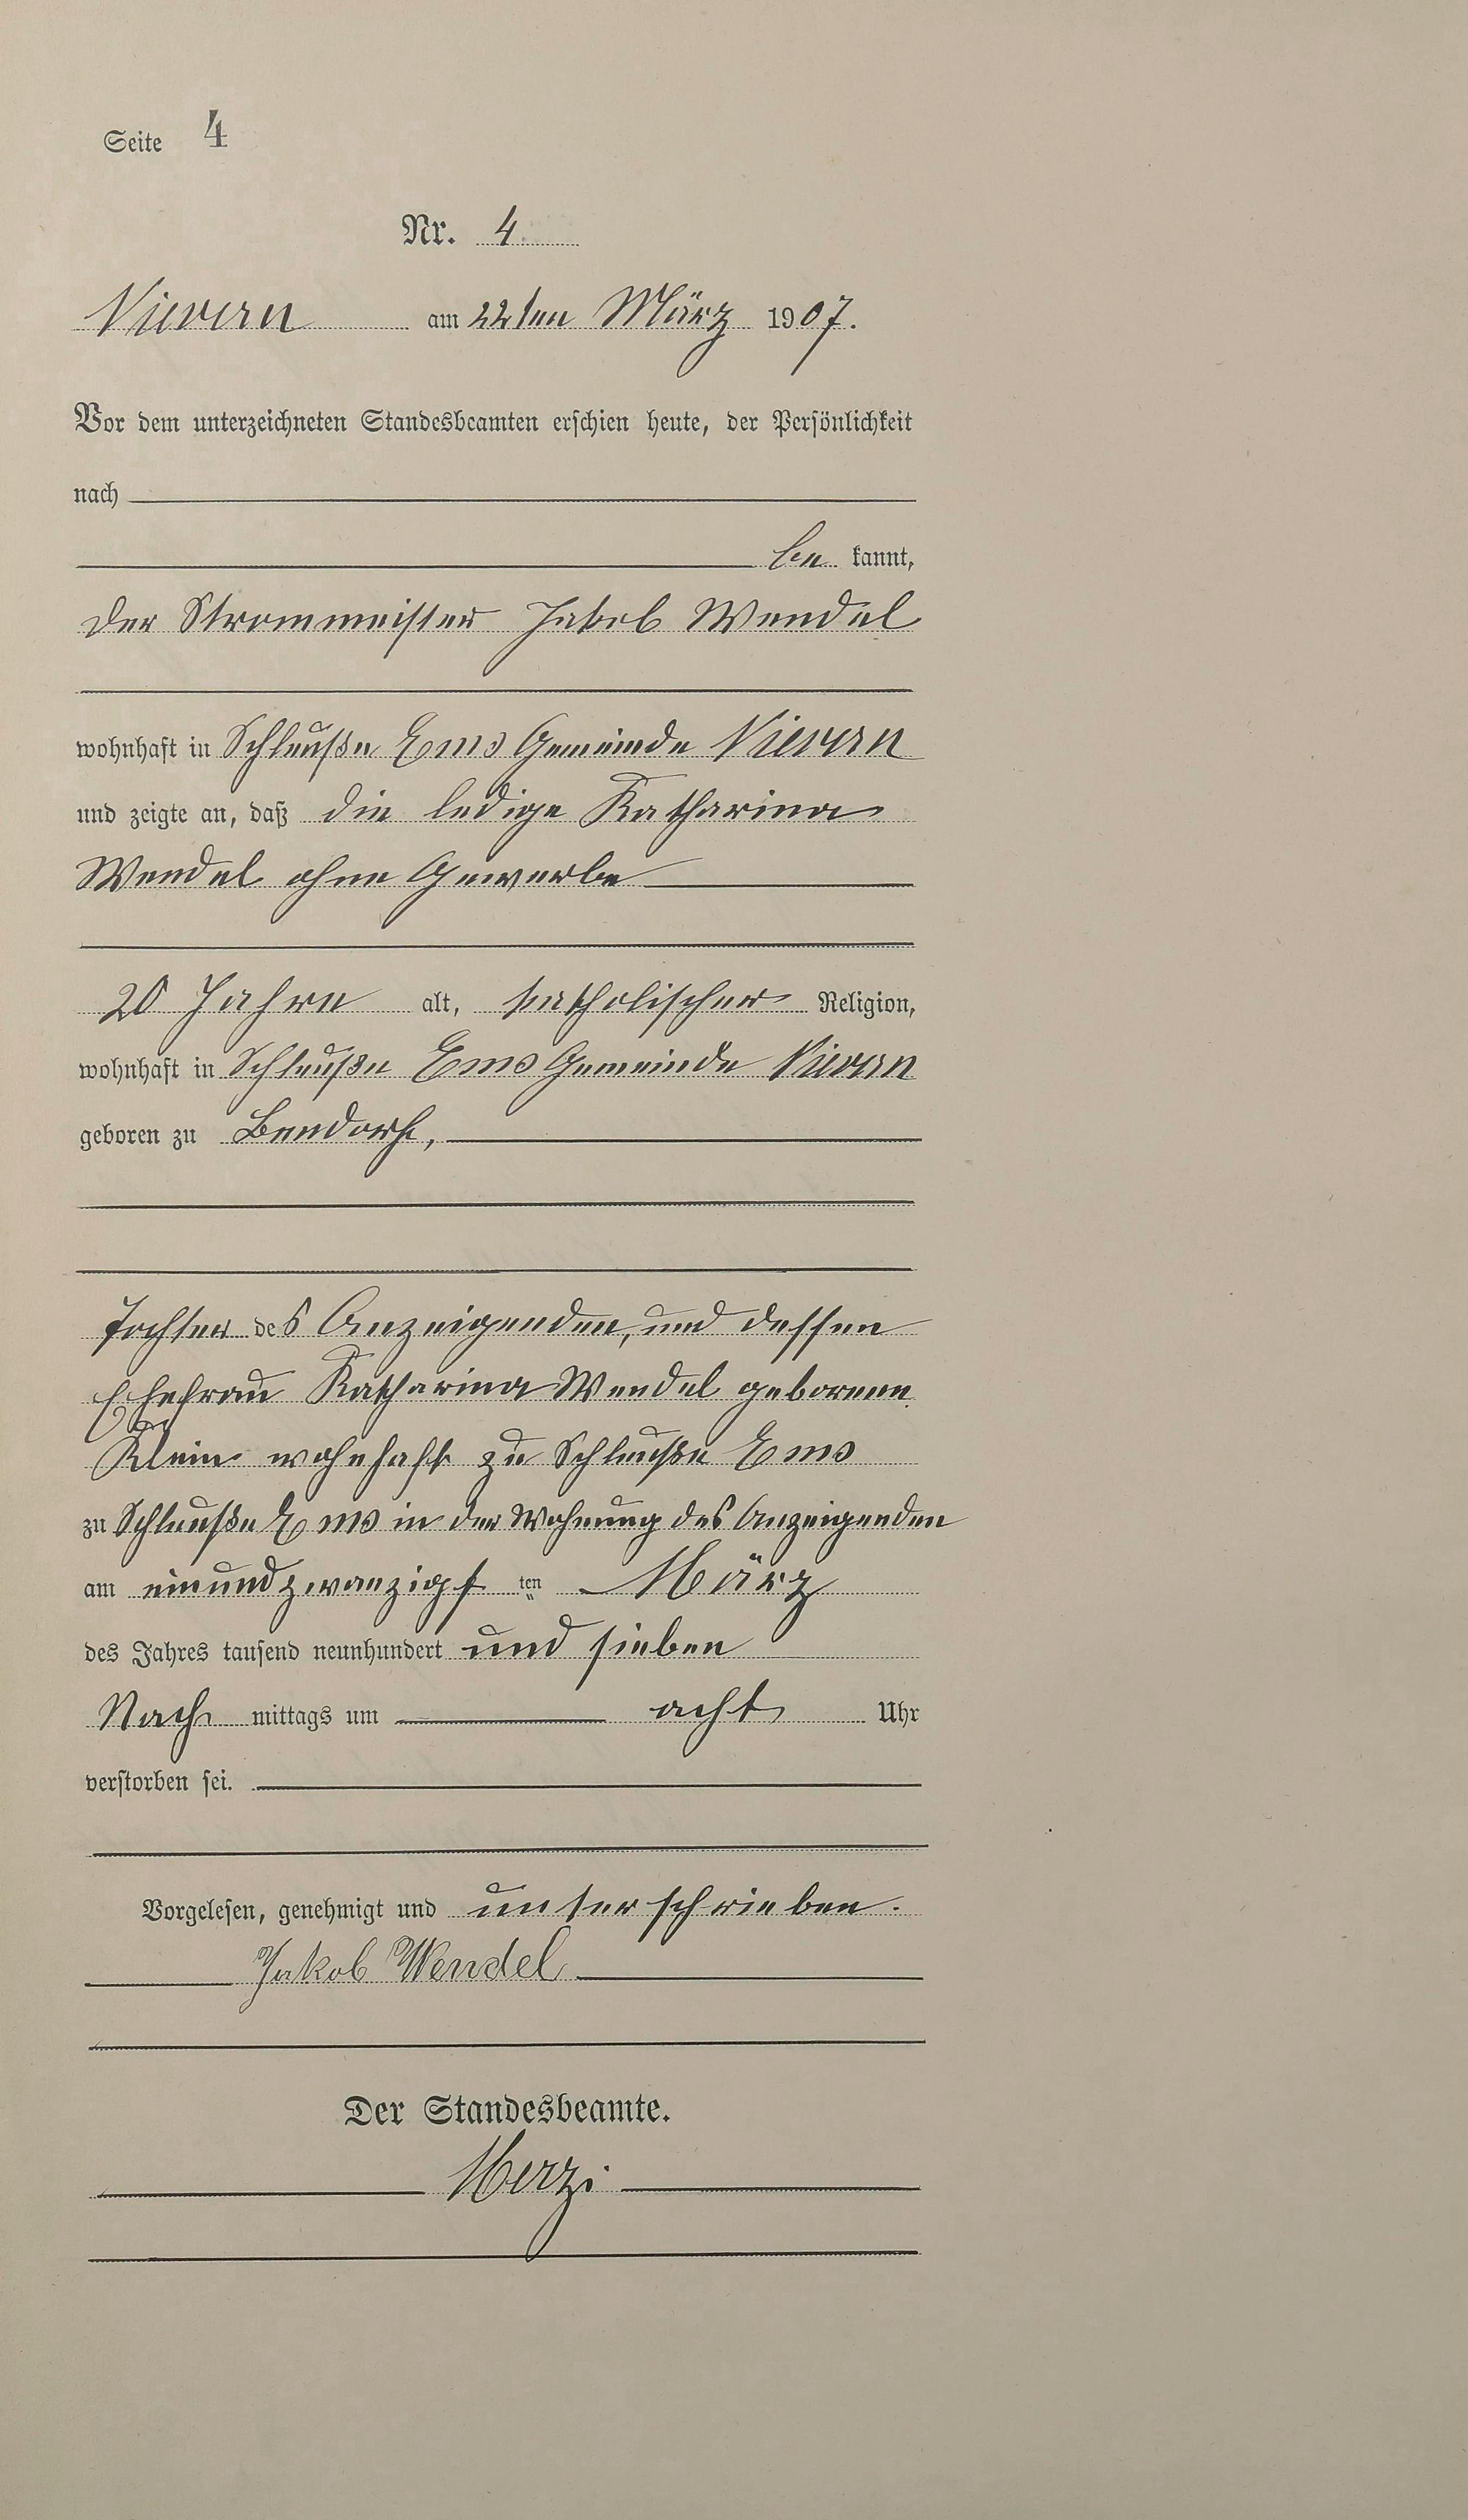 Seite 4
Nr. 4.
Nievern am 22ten März 1907.
Vor dem unterzeichneten Standesbeamten erschien heute, der Persönlichkeit
nach
be kannt,
der Strommeister Jakob Wendel
wohnhaft in Schleuße Ems Gemeinde Nievern
und zeigte an, daß die ledige Katharina
Wendel ohne Gewerbe
20 Jahre alt, katholischer Religion,
wohnhaft in Schleuße Ems Gemeinde Nievern
geboren zu Bendorf,
Tochter des Anzeigenden, und dessen
Ehefrau Katharina Wendel geborenen
Klein wohnhaft zu Schleuße Ems
zu Schleuße Ems in der Wohnung des Anzeigenden
am einundzwanzigst ten März
des Jahres tausend neunhundert und sieben
Nach mittags um acht Uhr
verstorben sei.
Vorgelesen, genehmigt und unterschrieben.
Jakob Wendel
Der Standesbeamte.